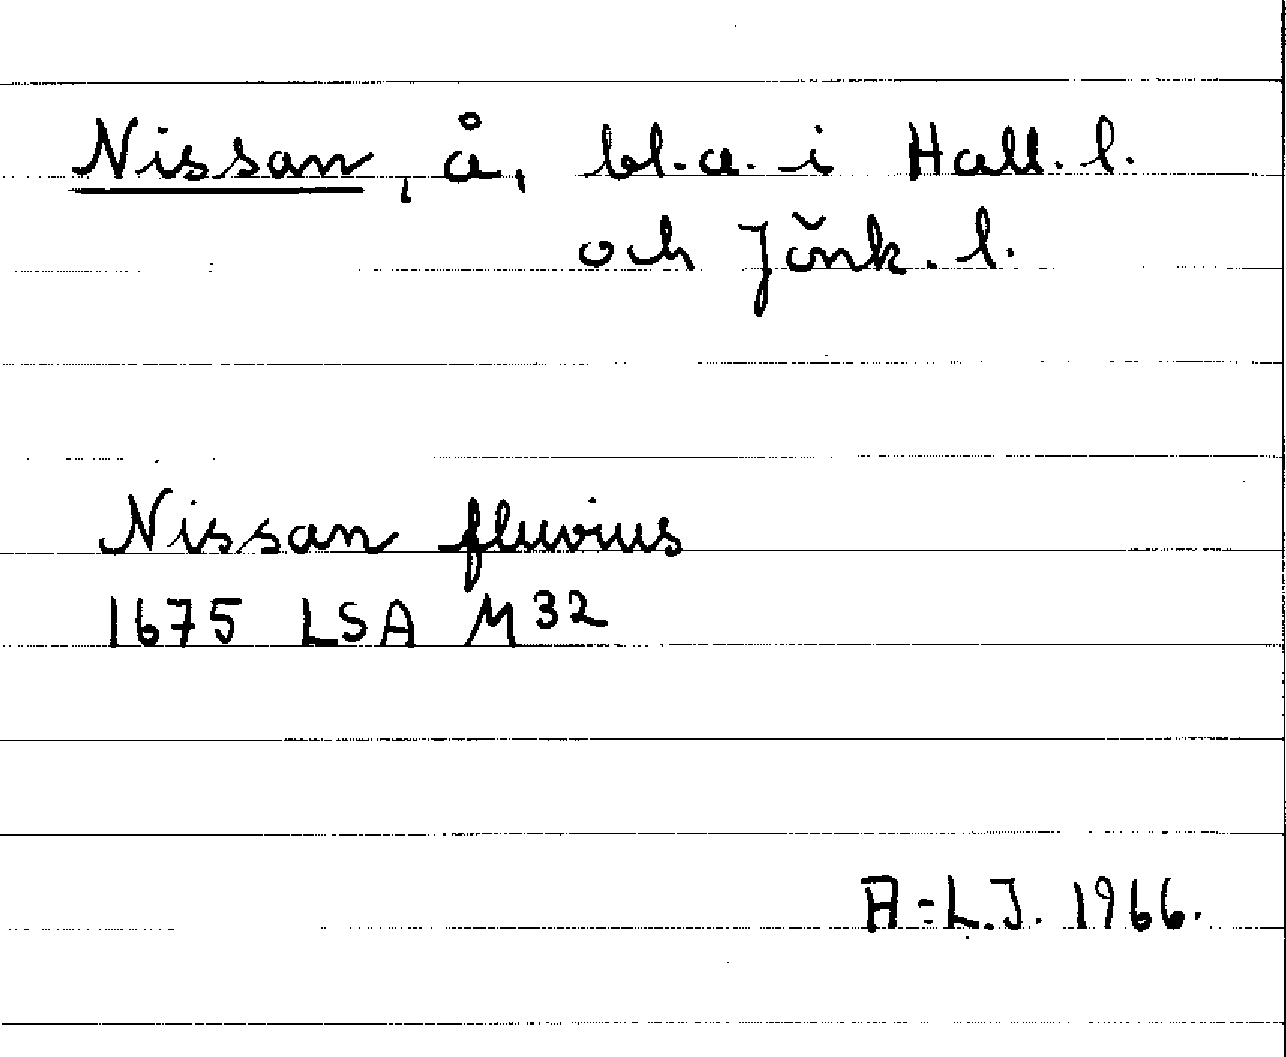 Nissan, å, bl.a. i Hall. l.
och Jönk. l.
Nissan fluvius
1675 LSA M32
A-L.J. 1966.